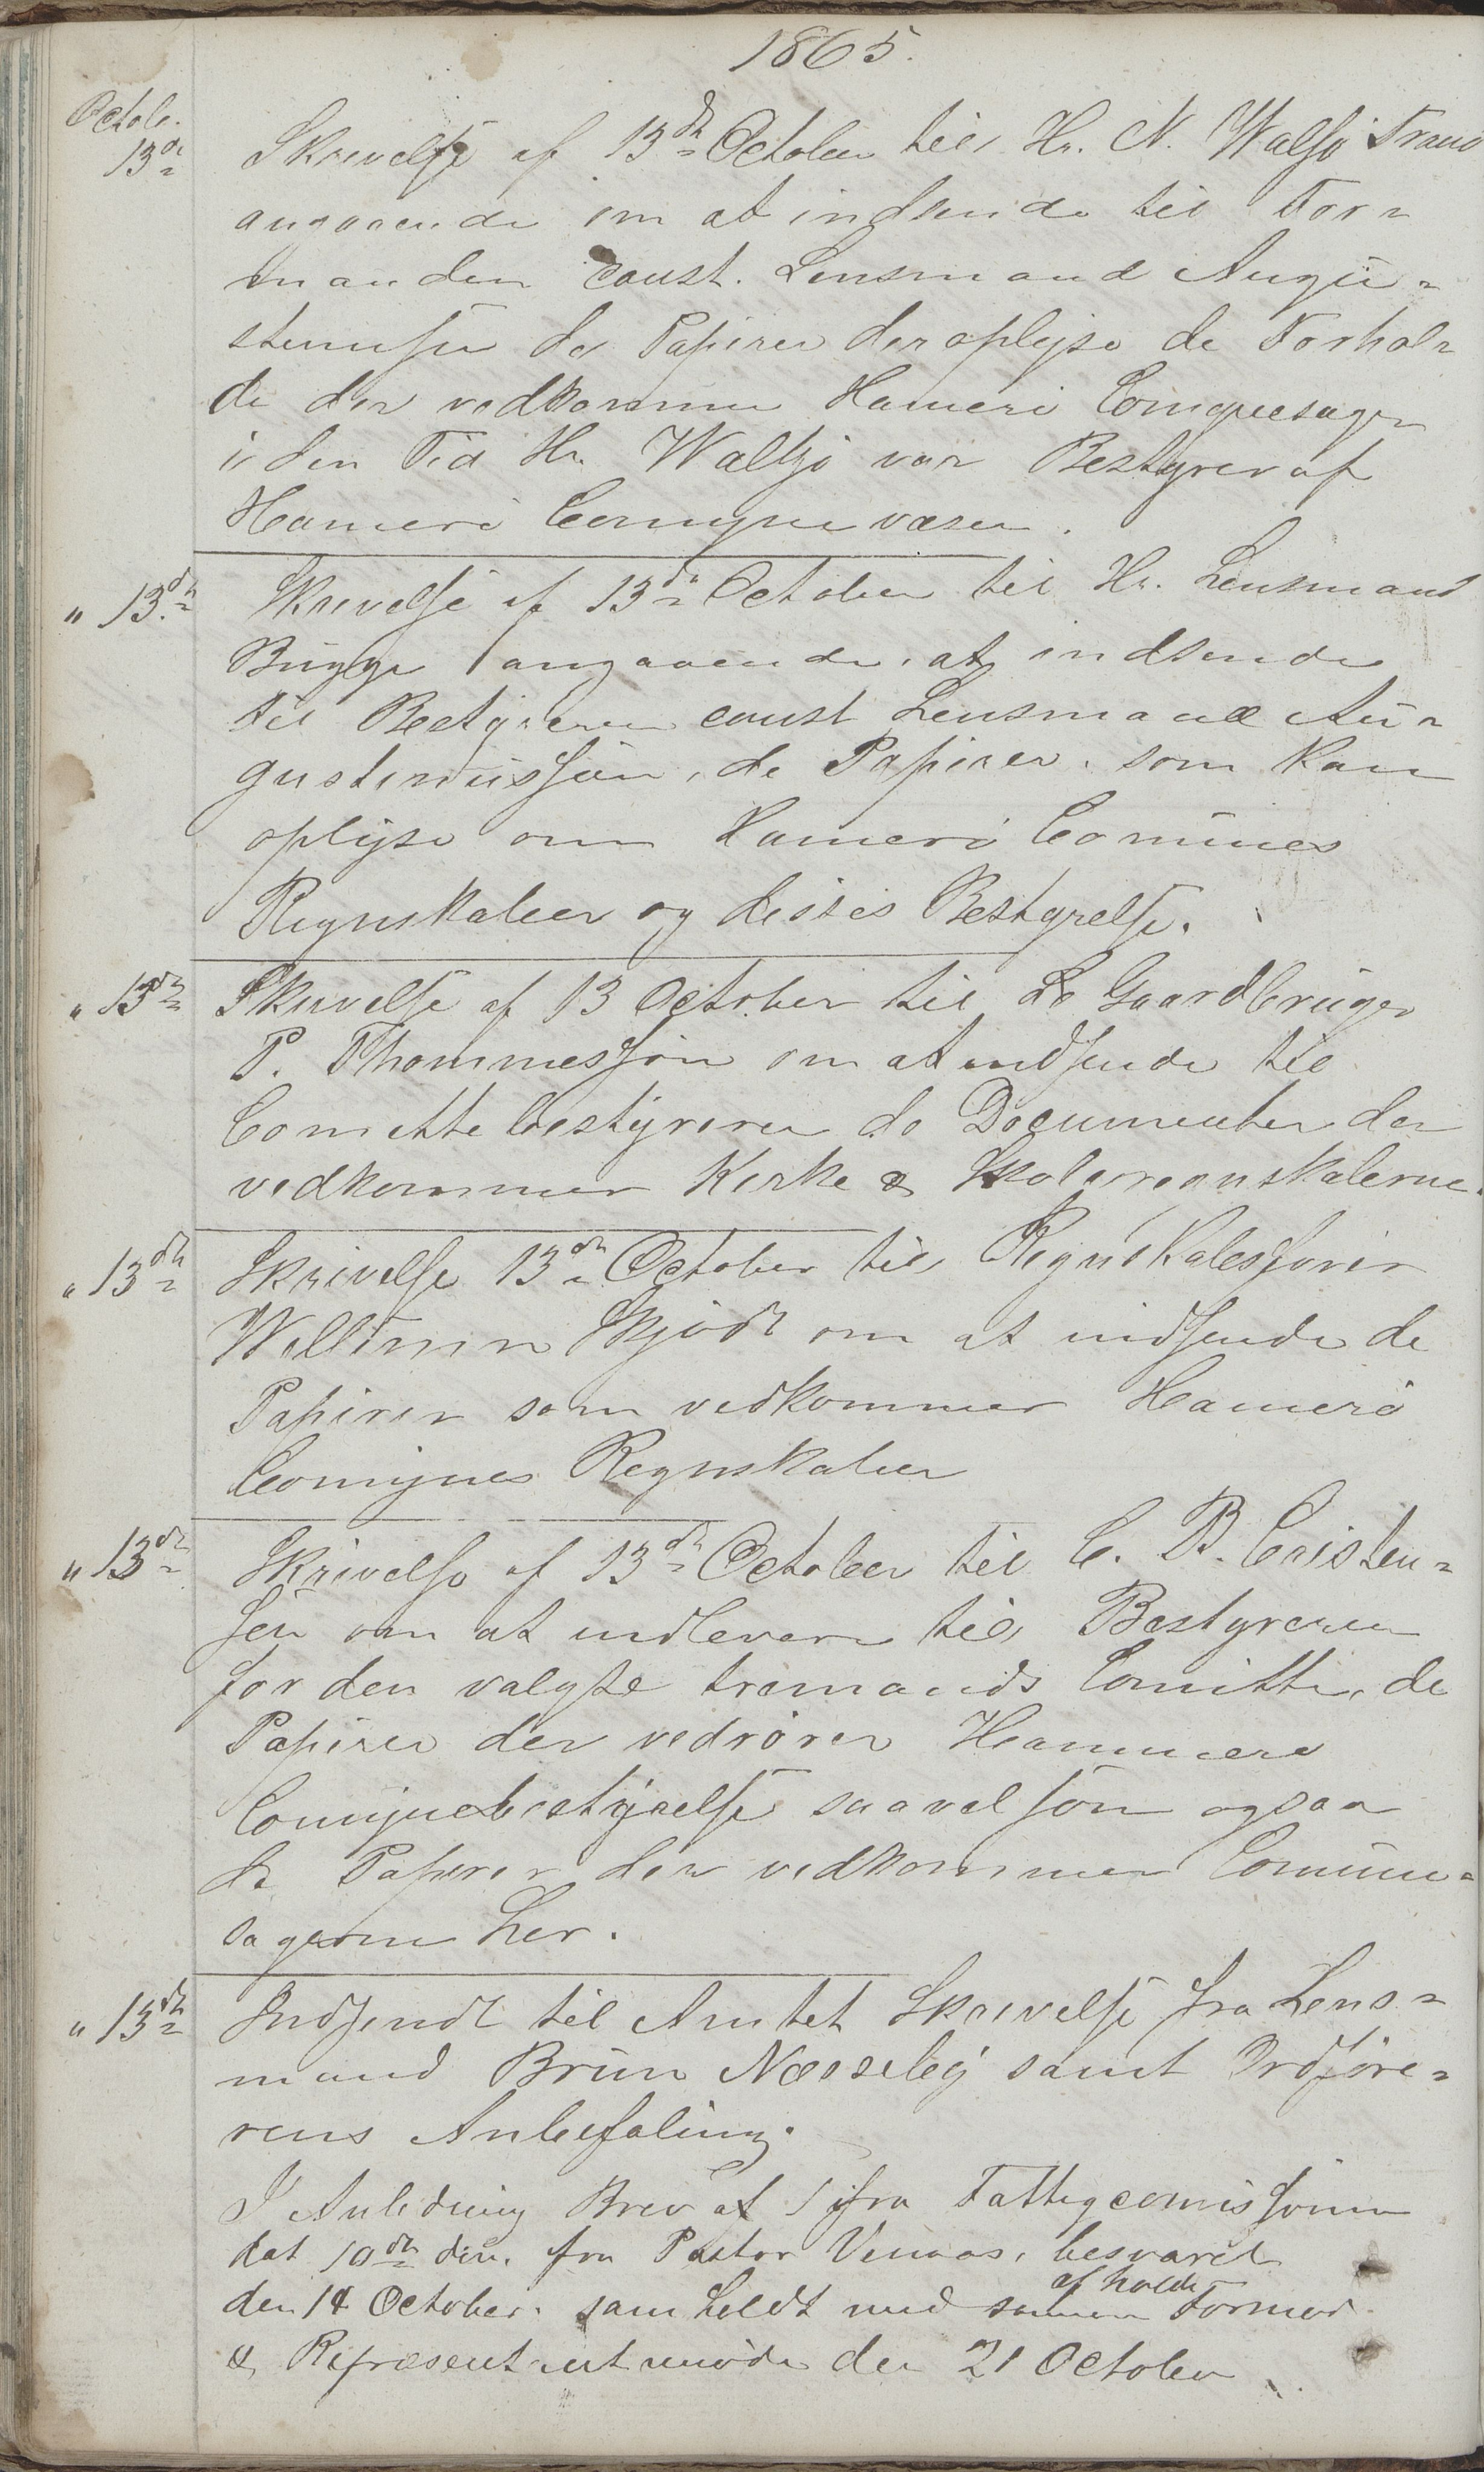 1865.
Octob.
13de Skrivelse af 13de October til Hr. N. Walsø Tranø
angaaende om at indsende til For=
manden const. Lensmand Augu=
stinusen de Papirer der oplyse de Forhol=
de der vedkomme Hamerø Comunesager
i den Tid Hr. Walsø var Bestyrer af
Hamerø Comunevæsen.
" 13de Skrivelse af 13de October til Hr. Lensmand
Bugge angaaende, at indsende
til Bestyreren const Lensmand Au=
gustinussøn, de Papirer, som kan
oplyse om Hamerø Comunes
Regnskaber og disses Bestyrelse.
" 13de Skrivelse af 13 October til Gaardbruger
P. Thommessøn om at indsende til
Comittebestyreren de Documenter der
vedkommer Kirke & Skoleregnskaberne.
" 13de Skrivelse 13de October til Regnskabsfører
Willumn Skjødt om at indsende de
Papirer som vedkommer Hamerø
Comunes Regnskaber
" 13de Skrivelse af 13de October til C. B. Cristen=
sen om at indlevere til Bestyreren
for den valgte tremands Comitte, de
Papirer der vedrører Hammerø
Comunebestyrelse saavelsom ogsaa
de Papirer der vedkommer Comune=
sagerne her.
" 13de Indsendt til Amtet Skrivelse fra Lens=
mand Brun Næsseby samt Ordføre=
rens Anbefaling.
I Anledning Brev af fra Fattigcomissionen
dat 10de ds. fra Pastor Venaas, besvaret
den 14 October. samt holdt med afholde Formæ.
& Repræsentantmøde den 21 October